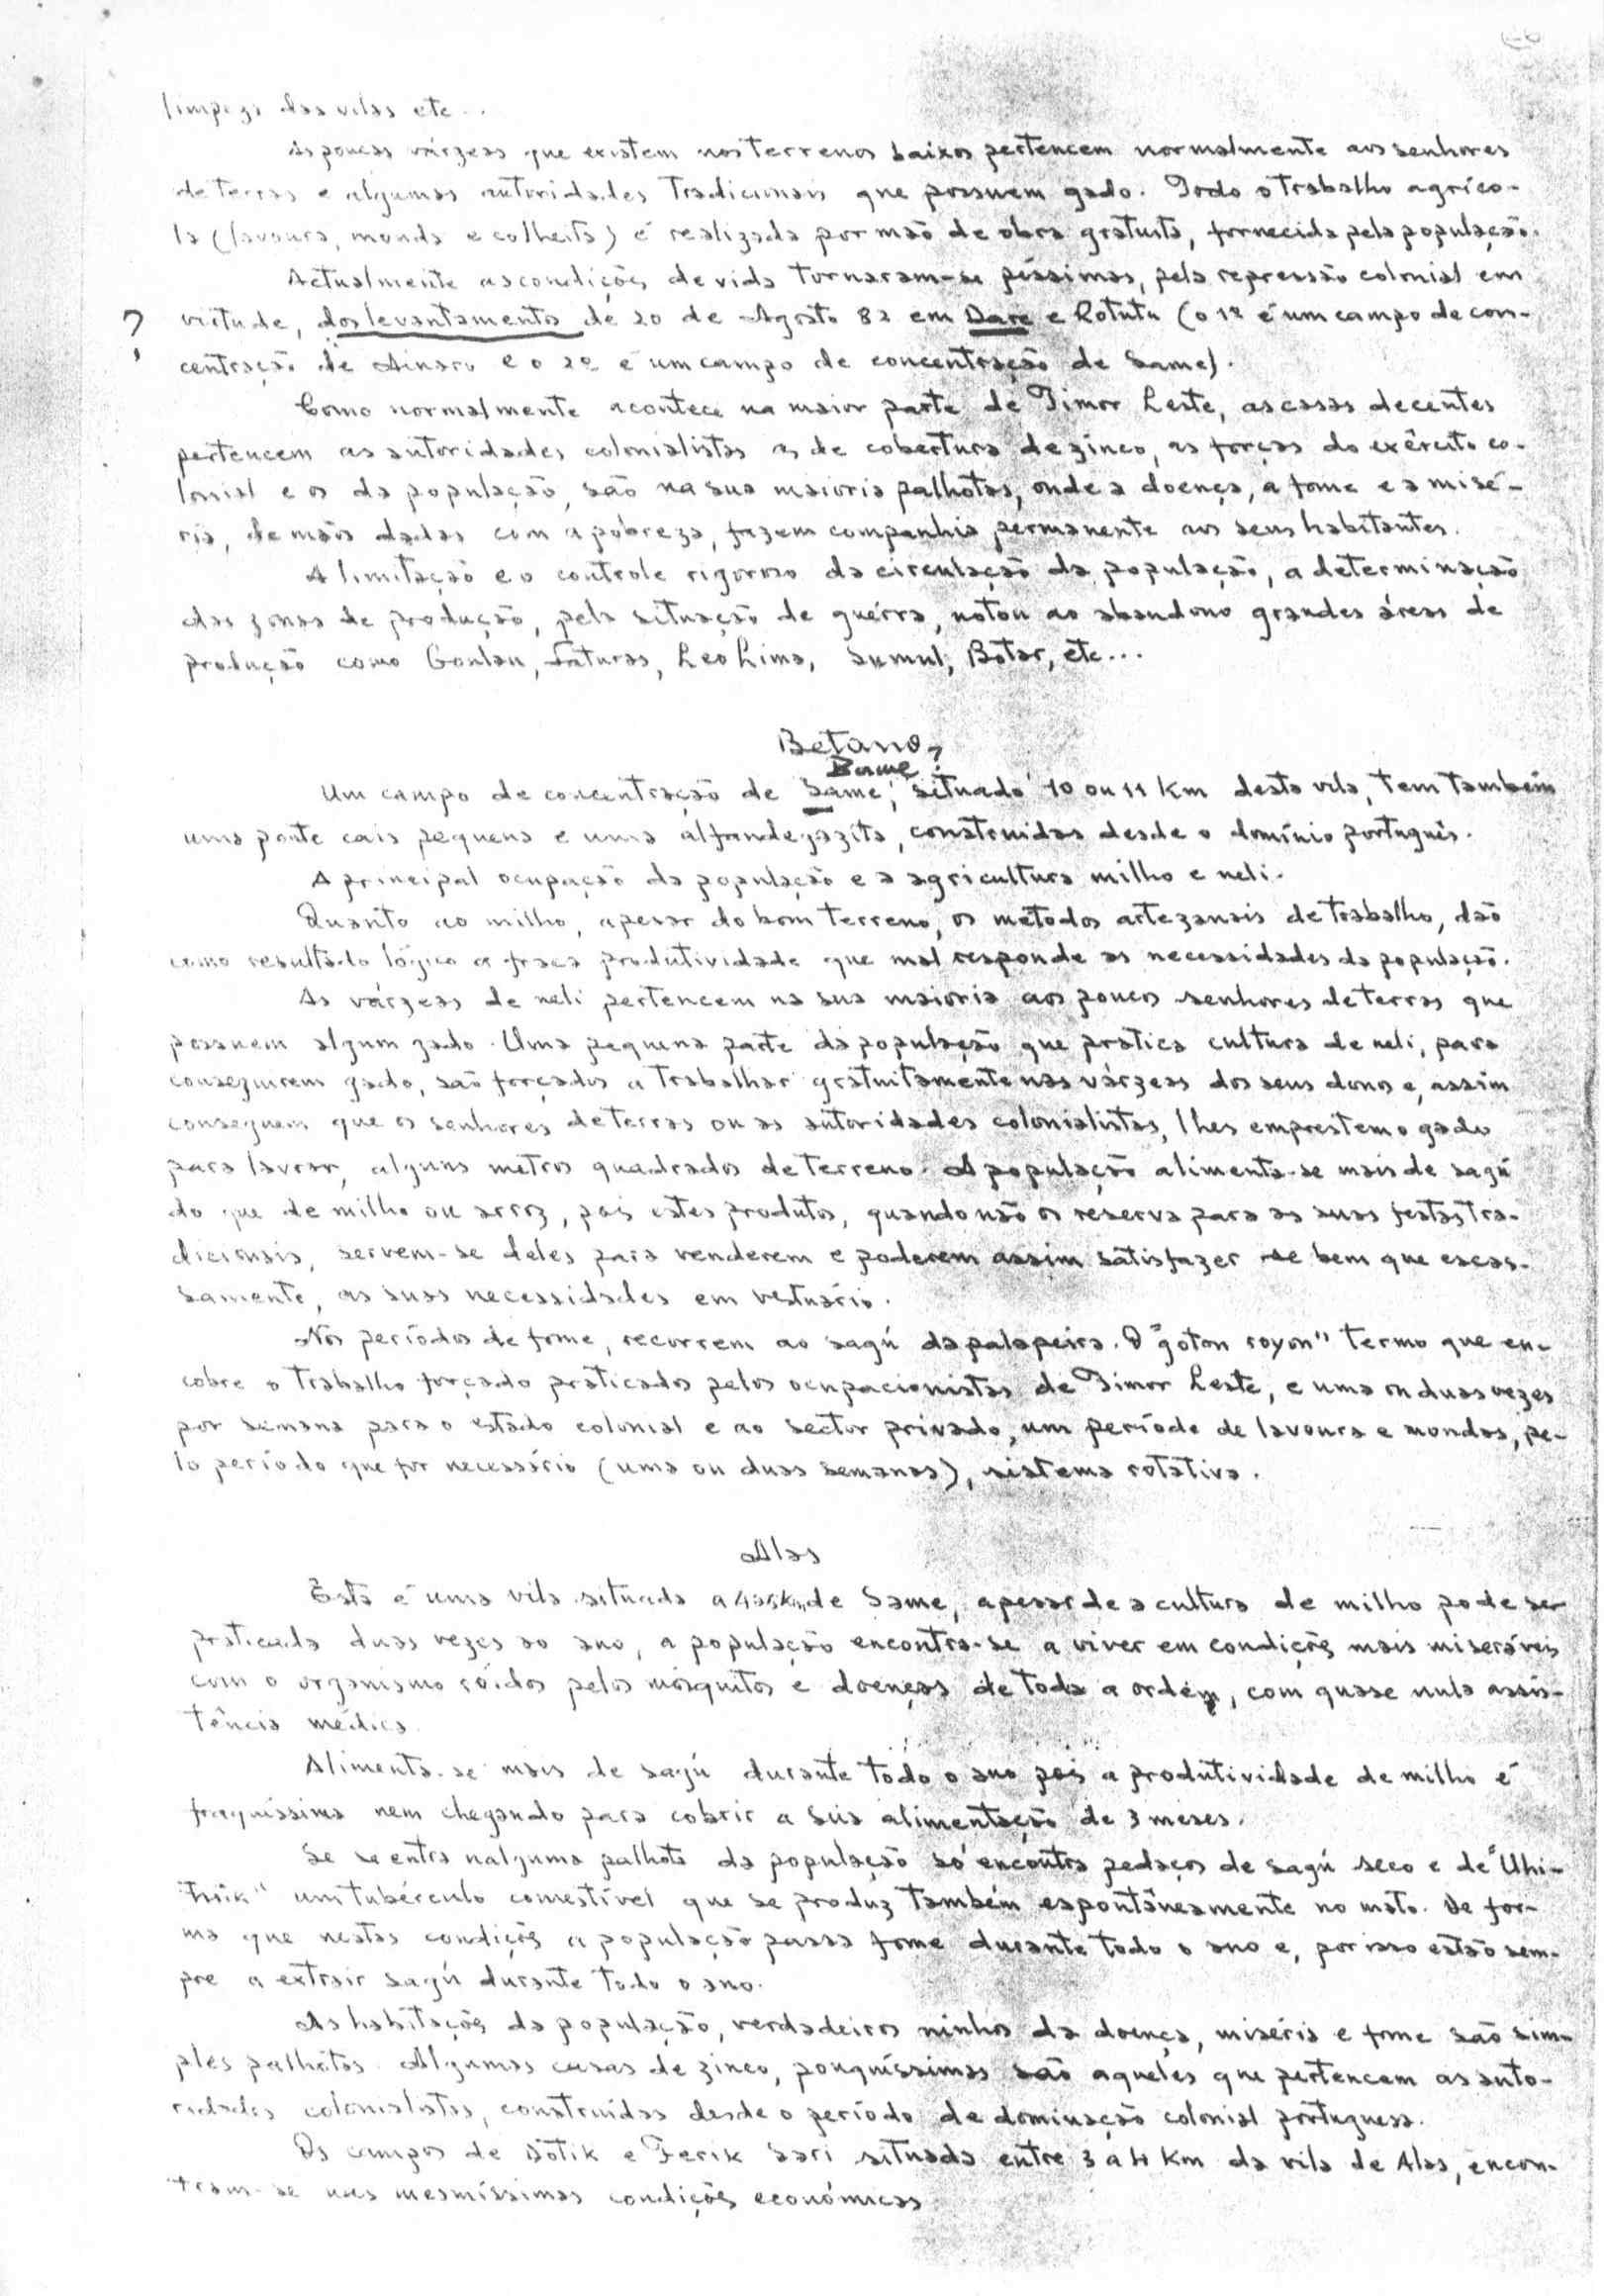 limpeza das vilas etc...
As poucas várzeas que existem nos terrenos baixos pertencem normalmente aos senhores
de terras e algumas autoridades tradicionais que possuem gado. Todo o trabalho agríco-
la (lavoura, monda e colheita) é realizada por mão de obra gratuita, fornecida pela população.
Actualmente as condições de vida tornaram-se péssimas, pela repressão colonial em
? virtude, dos levantamentos de 20 de Agosto 82 em Dare e Rotutu (o 1º é um campo de con-
centração de Ainaro e o 2º é um campo de concentração de Same).
Como normalmente acontece na maior parte de Timor Leste, as casas decentes
pertencem as autoridades colonialistas as de cobertura de zinco, as forças do exército co-
lonial e os da população, são na sua maioria palhotas, onde a doença, a fome e a misé-
ria, de mãos dadas com a pobreza, fazem companhia permanente aos seus habitantes.
A limitação e o controle rigoroso da circulação da população, a determinação
das zonas de produção, pela situação de guérra, notou ao abandono grandes áreas de
produção como Goulau, Faturas, Leo Lima, Sumul, Botar, etc...
Betano
Same?
Um campo de concentração de Same, situado 10 ou 11 Km desta vila, tem também
uma ponte cais pequena e uma alfandegazita, construidas desde o domínio português.
A principal ocupação da população e a agricultura milho e neli.
Quanto ao milho, apesar do bom terreno, os métodos artezanais de trabalho, dão
como resultado lógico a fraca produtividade que mal responde as necessidades da população.
As várzeas de neli pertencem na sua maioria aos poucos senhores de terras que
possuem algum gado. Uma pequena parte da população que pratica cultura de neli, para
conseguirem gado, são forçados a trabalhar gratuitamente nas várzeas dos seus donos e, assim
conseguem que os senhores de terras ou as autoridades colonialistas, lhes emprestem o gado
para lavrar, alguns metros quadrados de terreno. A população alimenta-se mais de sagú
do que de milho ou arroz, pois estes produtos, quando não os reserva para as suas festas tra-
dicionais, servem-se deles para venderem e poderem assim satisfazer se bem que escas-
samente, as suas necessidades em vestuário.
Nos períodos de fome, recorrem ao sagú da palapeira. O "goton royon" termo que en-
cobre o trabalho forçado praticados pelos ocupacionistas de Timor Leste, e uma ou duas vezes
por semana para o estado colonial e ao sector privado, um período de lavoura e mondas, pe-
lo período que for necessário (uma ou duas semanas), sistema rotativa.
Alas
Esta é uma vila situada a de Same, apesar de a cultura de milho pode ser
praticada duas vezes ao ano, a população encontra-se a viver em condições mais miseráveis
com o organismo róidos pelos mosquitos e doenças de toda a ordem, com quase nula assis-
tência médica.
Alimenta-se mais de sagú durante todo o ano pois a produtividade de milho é
fraquíssima nem chegando para cobrir a sua alimentação de 3 meses.
Se se entra nalguma palhota da população só encontra pedaços de sagú seco e de "Uhi-
tuik" um tubérculo comestível que se produz também espontâneamente no mato. De for-
ma que nestas condições a população passa fome durante todo o ano e, por isso estão sem-
pre a extrair sagú durante todo o ano.
As habitações da população, verdadeiros ninhos da doença, miséria e fome são sim-
ples palhotas. Algumas casas de zinco, pouquíssimas são aqueles que pertencem as auto-
ridades colonialistas, construídas desde o período de dominação colonial portuguesa.
Os campos de Dotik e Ferik Sari situada entre 3 a 4 Km da vila de Alas, encon-
tram-se nas mesmíssimas condições económicas